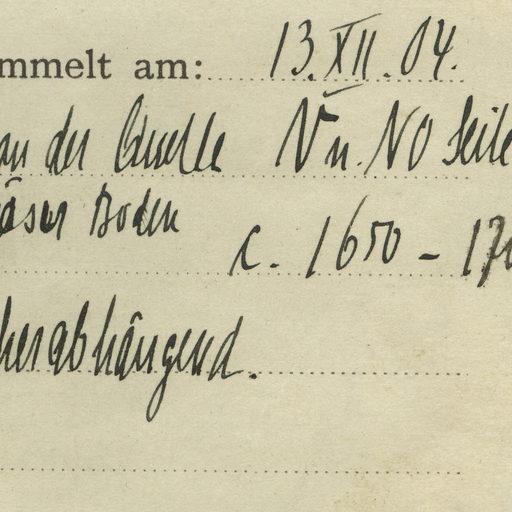 mmelt am: 13. XII. 04.
an der Quelle N u. NO Seite
öser Boden
c. 1650 - 170
herabhängend.